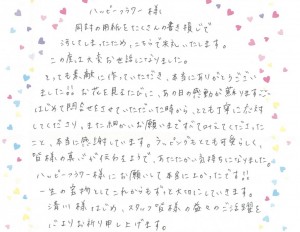 ハッピーフラワー様
同封の用紙をたくさんの書き損じで
汚してしまったため、こちらで失礼いたします。
この度は大変お世話になりました。
とっても素敵に作っていただき、本当にありがとうござい
ました!! お花を見るたびに、あの日の感動が蘇ります。
はじめて問合せをさせていただいた時から、とても丁寧に応対
してくださり、また細かいお願いまですべて叶えて下さった
こと、本当に感謝しています。ラッピングもとても可愛らしく、
皆様の真心が伝わるようで、あたたかい気持ちになりました。
ハッピーフラワー様にお願いして本当に良かったです!!
一生の宝物としてこれからもずっと大切にしていきます。
清川様はじめ、スタッフ皆様の益々のご活躍を
心よりお祈り申し上げます。